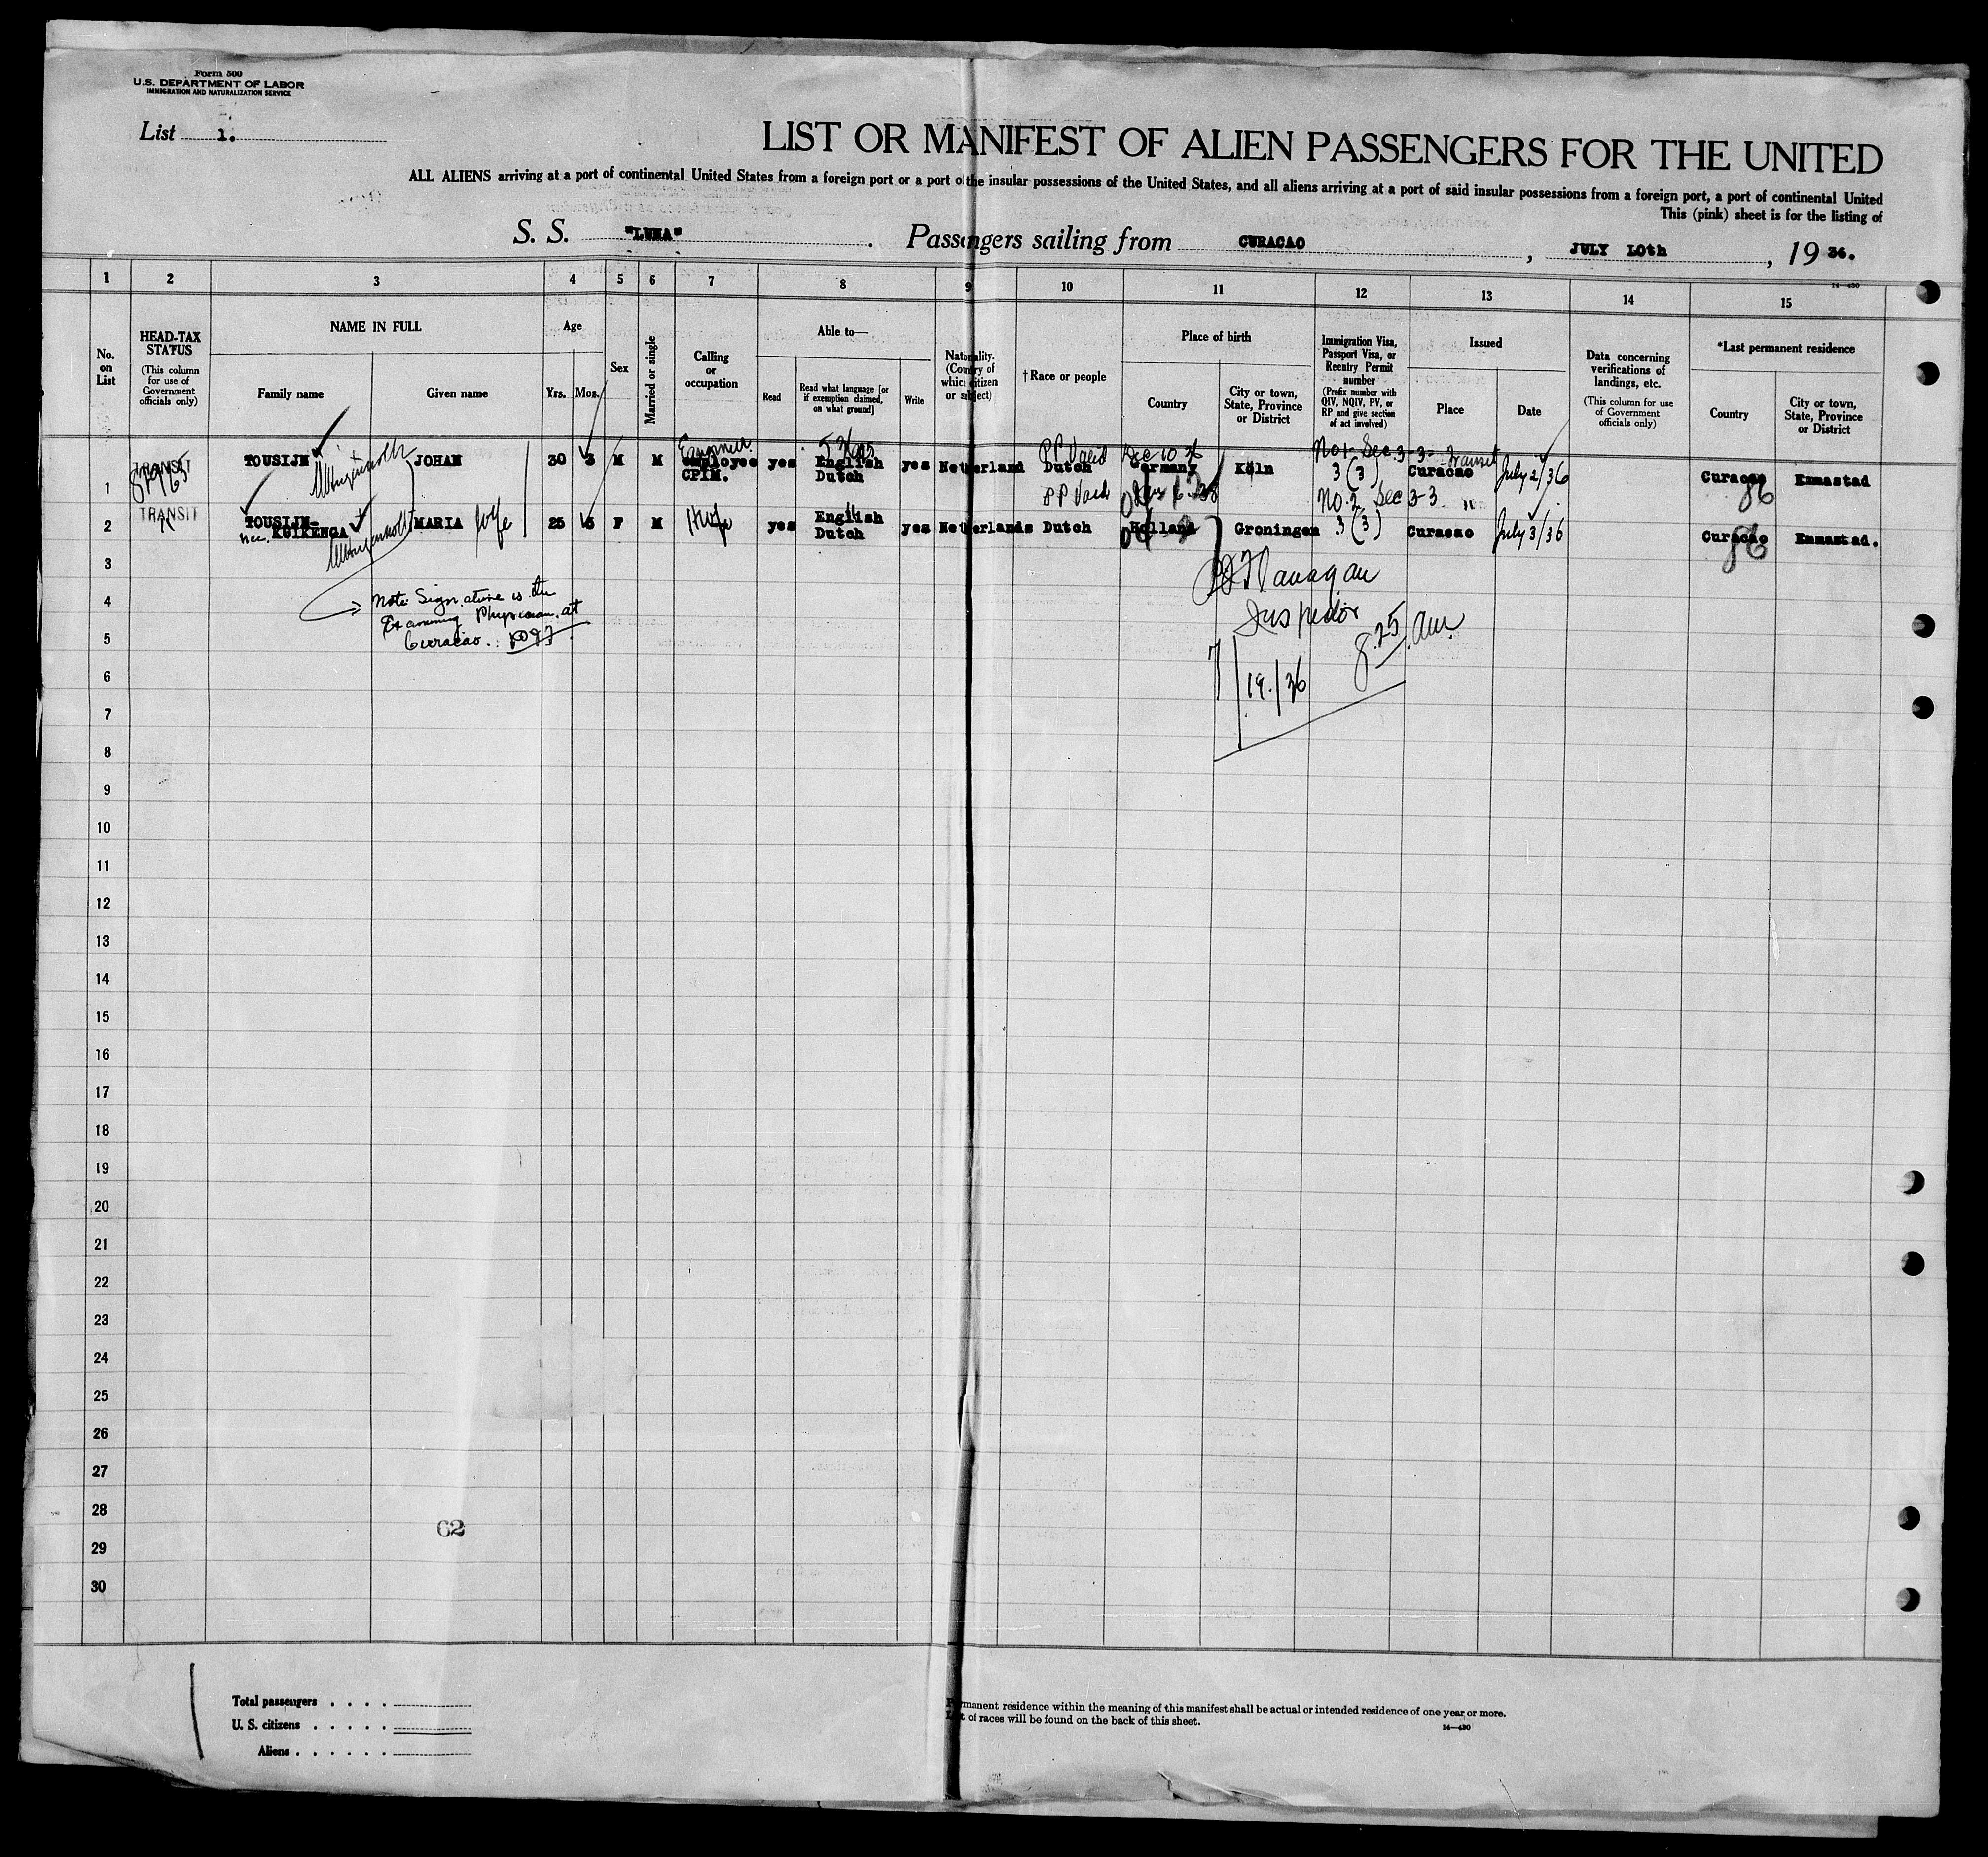 Form 500
U.S. DEPARTMENT OF LABOR
IMMIGRATION AND NATURALIZATION SERVICE
List 1.
LIST OR MANIFEST OF ALIEN PASSENGERS FOR THE UNITED
ALL ALIENS arriving at a port of continental United States from a foreign port or a port of the insular possessions of the United States, and all aliens arriving at a port of said insular possessions from a foreign port, a port of continental United
This (pink) sheet is for the listing of
S. S. "LUNA" . Passengers sailing from CURACAO , JULY 10th , 19 36.
1 2 3 4 5 6 7 8 9 10 11 12 13 14 15
14—430
No. on List
HEAD-TAX STATUS
(This column for use of Government officials only)
NAME IN FULL
Family name
Given name
Age
Yrs.
Mos.
Sex
Married or single
Calling or occupation
Able to—
Read
Read what language [or if exemption claimed, on what ground]
Write
Nationality. (Country of which citizen or subject)
†Race or people
Place of birth
Country
City or town, State, Province or District
Immigration Visa, Passport Visa, or Reentry Permit number
(Prefix number with QIV, NQIV, PV, or RP and give section of act involved)
Issued
Place
Date
Data concerning verifications of landings, etc.
(This column for use of Government officials only)
*Last permanent residence
Country
City or town, State, Province or District
Engineer PP Valid Dec 10 No 1 Sec. 3-3- Transit
1 TRANSIT TOUSIJN JOHAN 30 3 M M employee CPIM. yes English Dutch yes Netherland Dutch Germany Köln 3 (3) Curacao July 2/36 Curaçao Emmastad
86
PP Valid No. 2 Sec 3-3 "
2 TRANSIT TOUSIJN- nee. KUIKENGA MARIA wife 25 5 F M HWife yes English Dutch yes Netherlands Dutch Holland Groningen 3 (3) Curacao July 3/36 Curacao Emmastad.
86
3
Flanagan
4
Note: Signature is the
Examining Physician at
Inspector
5
Curacao.
8.25 am.
6
7/19/36
7
8
9
10
11
12
13
14
15
16
17
18
19
20
21
22
23
24
25
26
27
28
62
29
30
Total passengers . . . .
U. S. citizens . . . . .
Aliens . . . . . .
Permanent residence within the meaning of this manifest shall be actual or intended residence of one year or more.
List of races will be found on the back of this sheet.
14—430